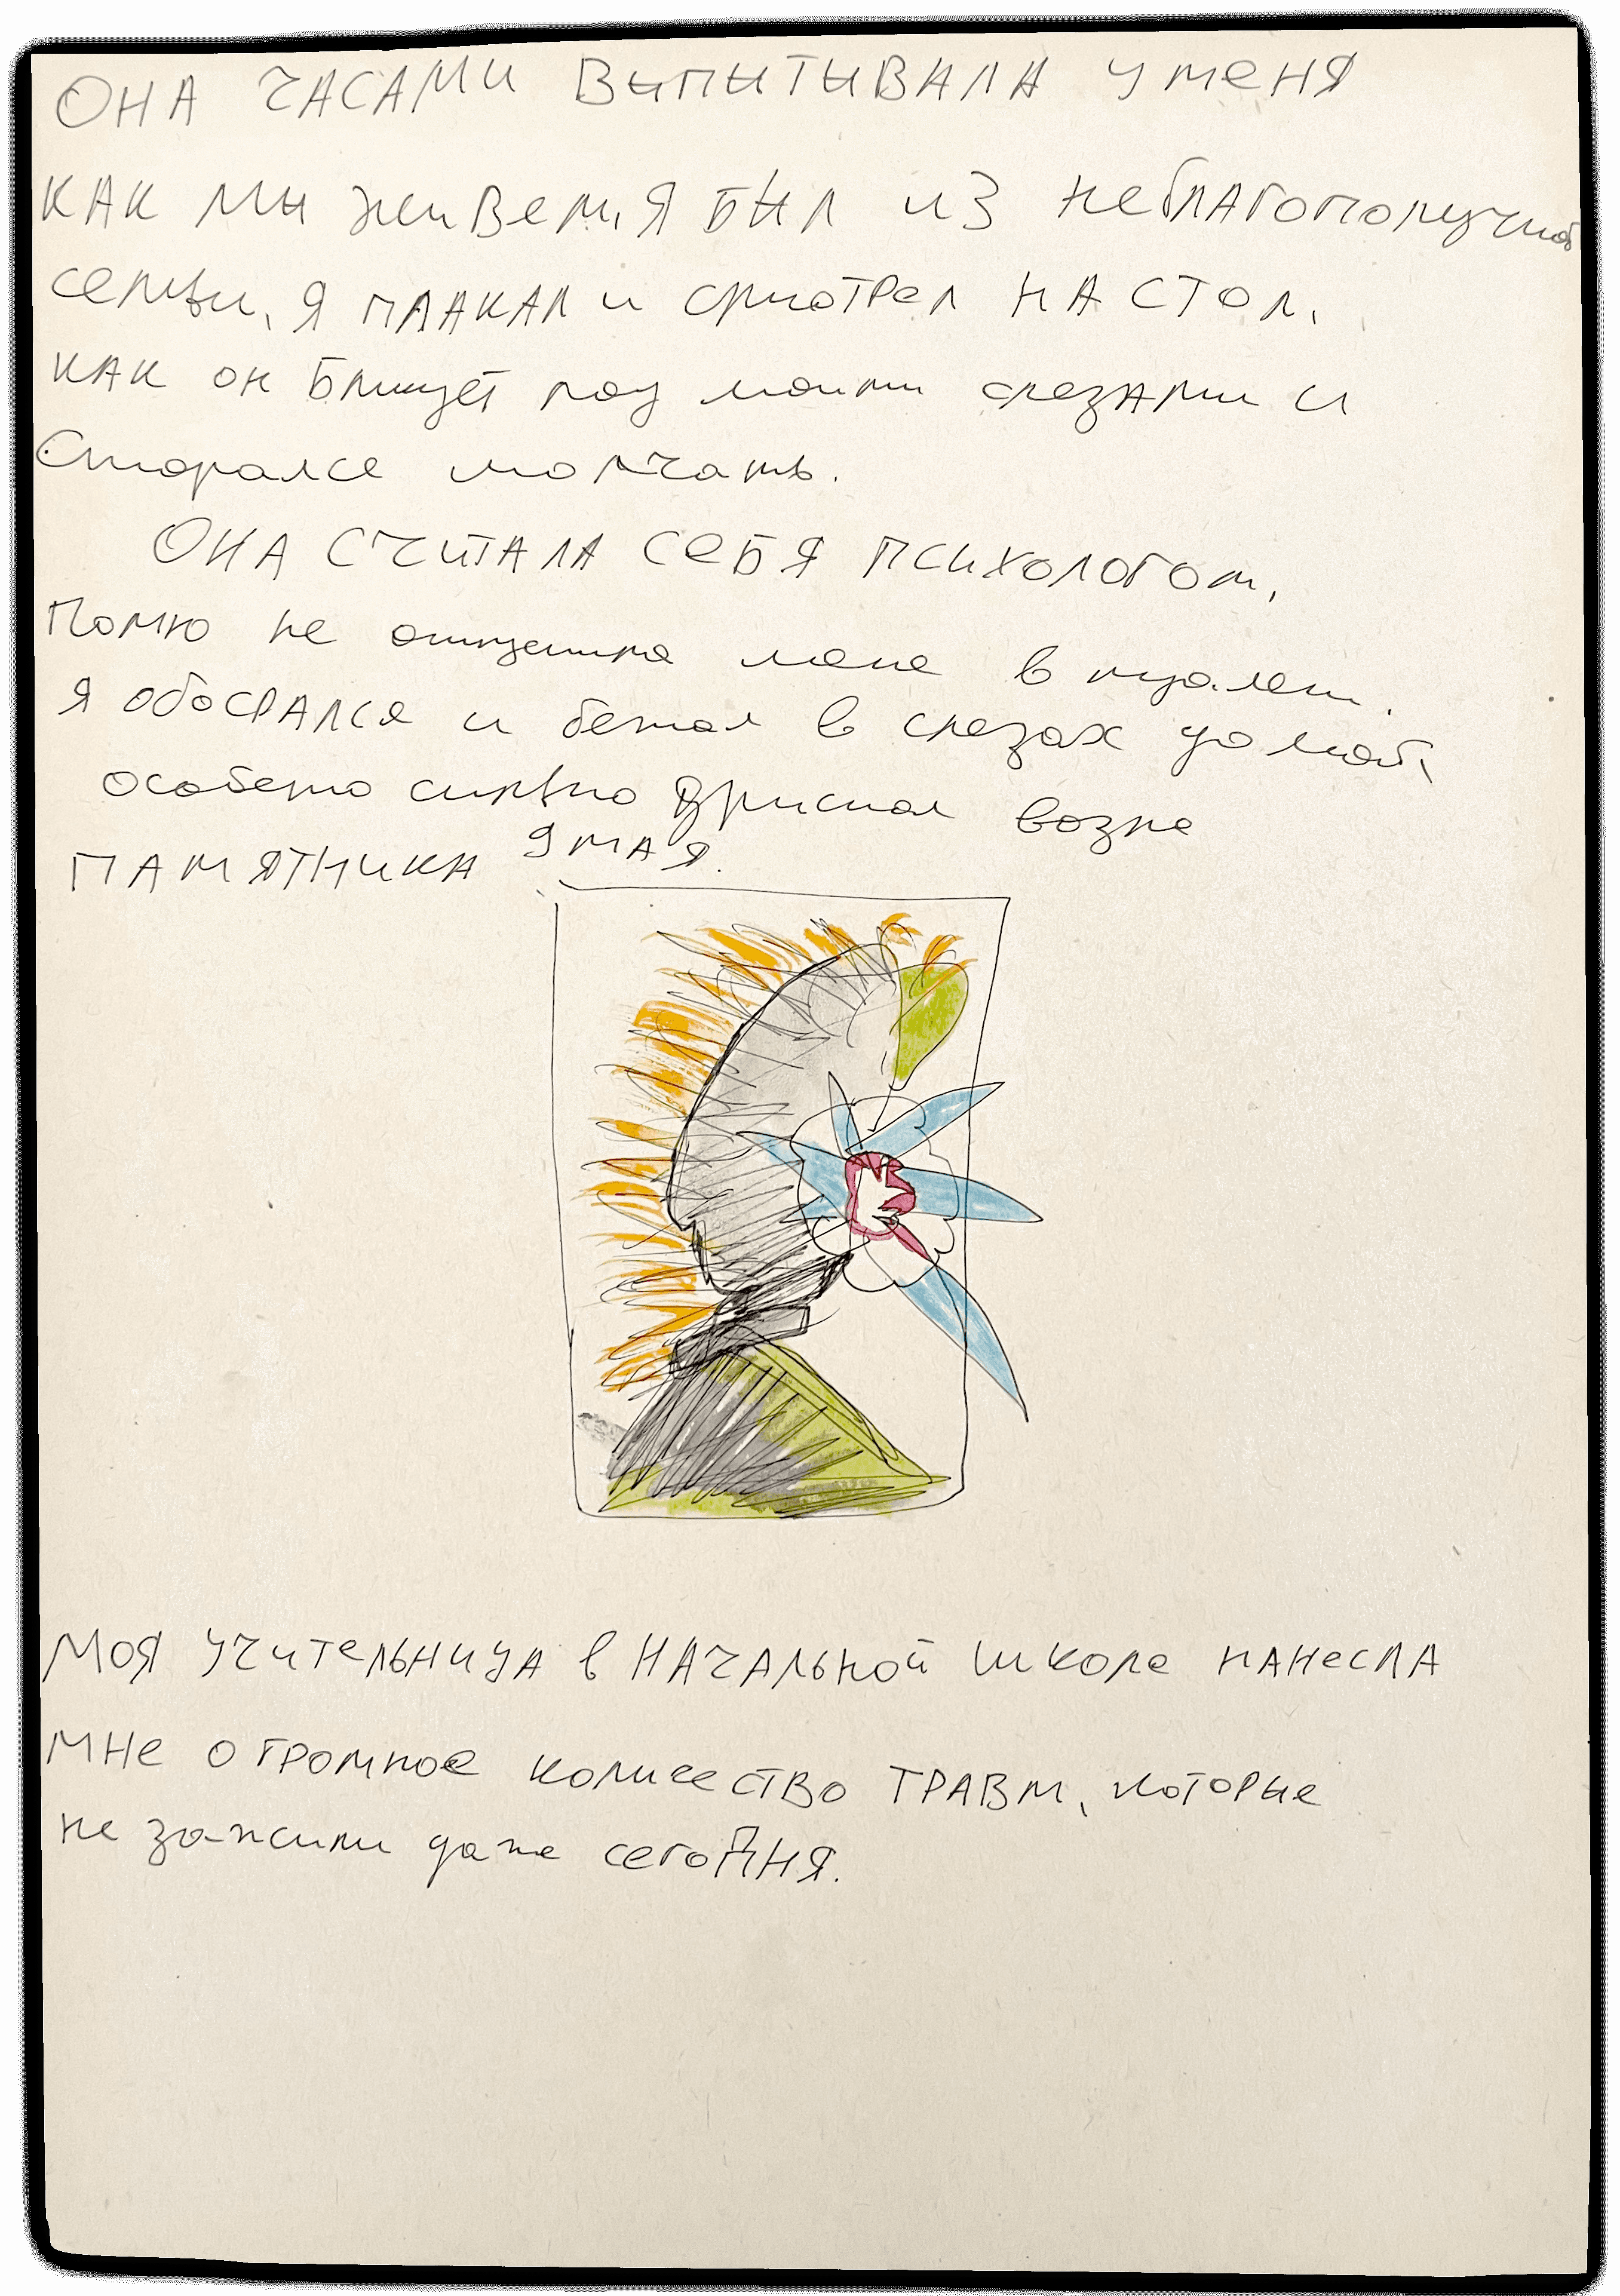 ОНА ЧАСАМИ ВЫПЫТЫВАЛА У МЕНЯ
КАК МЫ живем, Я БЫЛ ИЗ неблагополучной
семьи, Я ПЛАКАЛ и смотрел НА СТОЛ,
КАК он Блищет под моими слезами и
Старался молчать.
ОНА СЧИТАЛА СЕБЯ ПСИХОЛОГОМ,
Помню не отпустила меня в туалет.
Я обосрался и бежал в слезах домой,
особено сильно дристал возле
ПАМЯТНИКА 9 МАЯ.
Моя учительница в НАЧАЛЬНОЙ школе нанесла
мне огромное количество ТРАВМ, которые
не зажили даже сегодня.